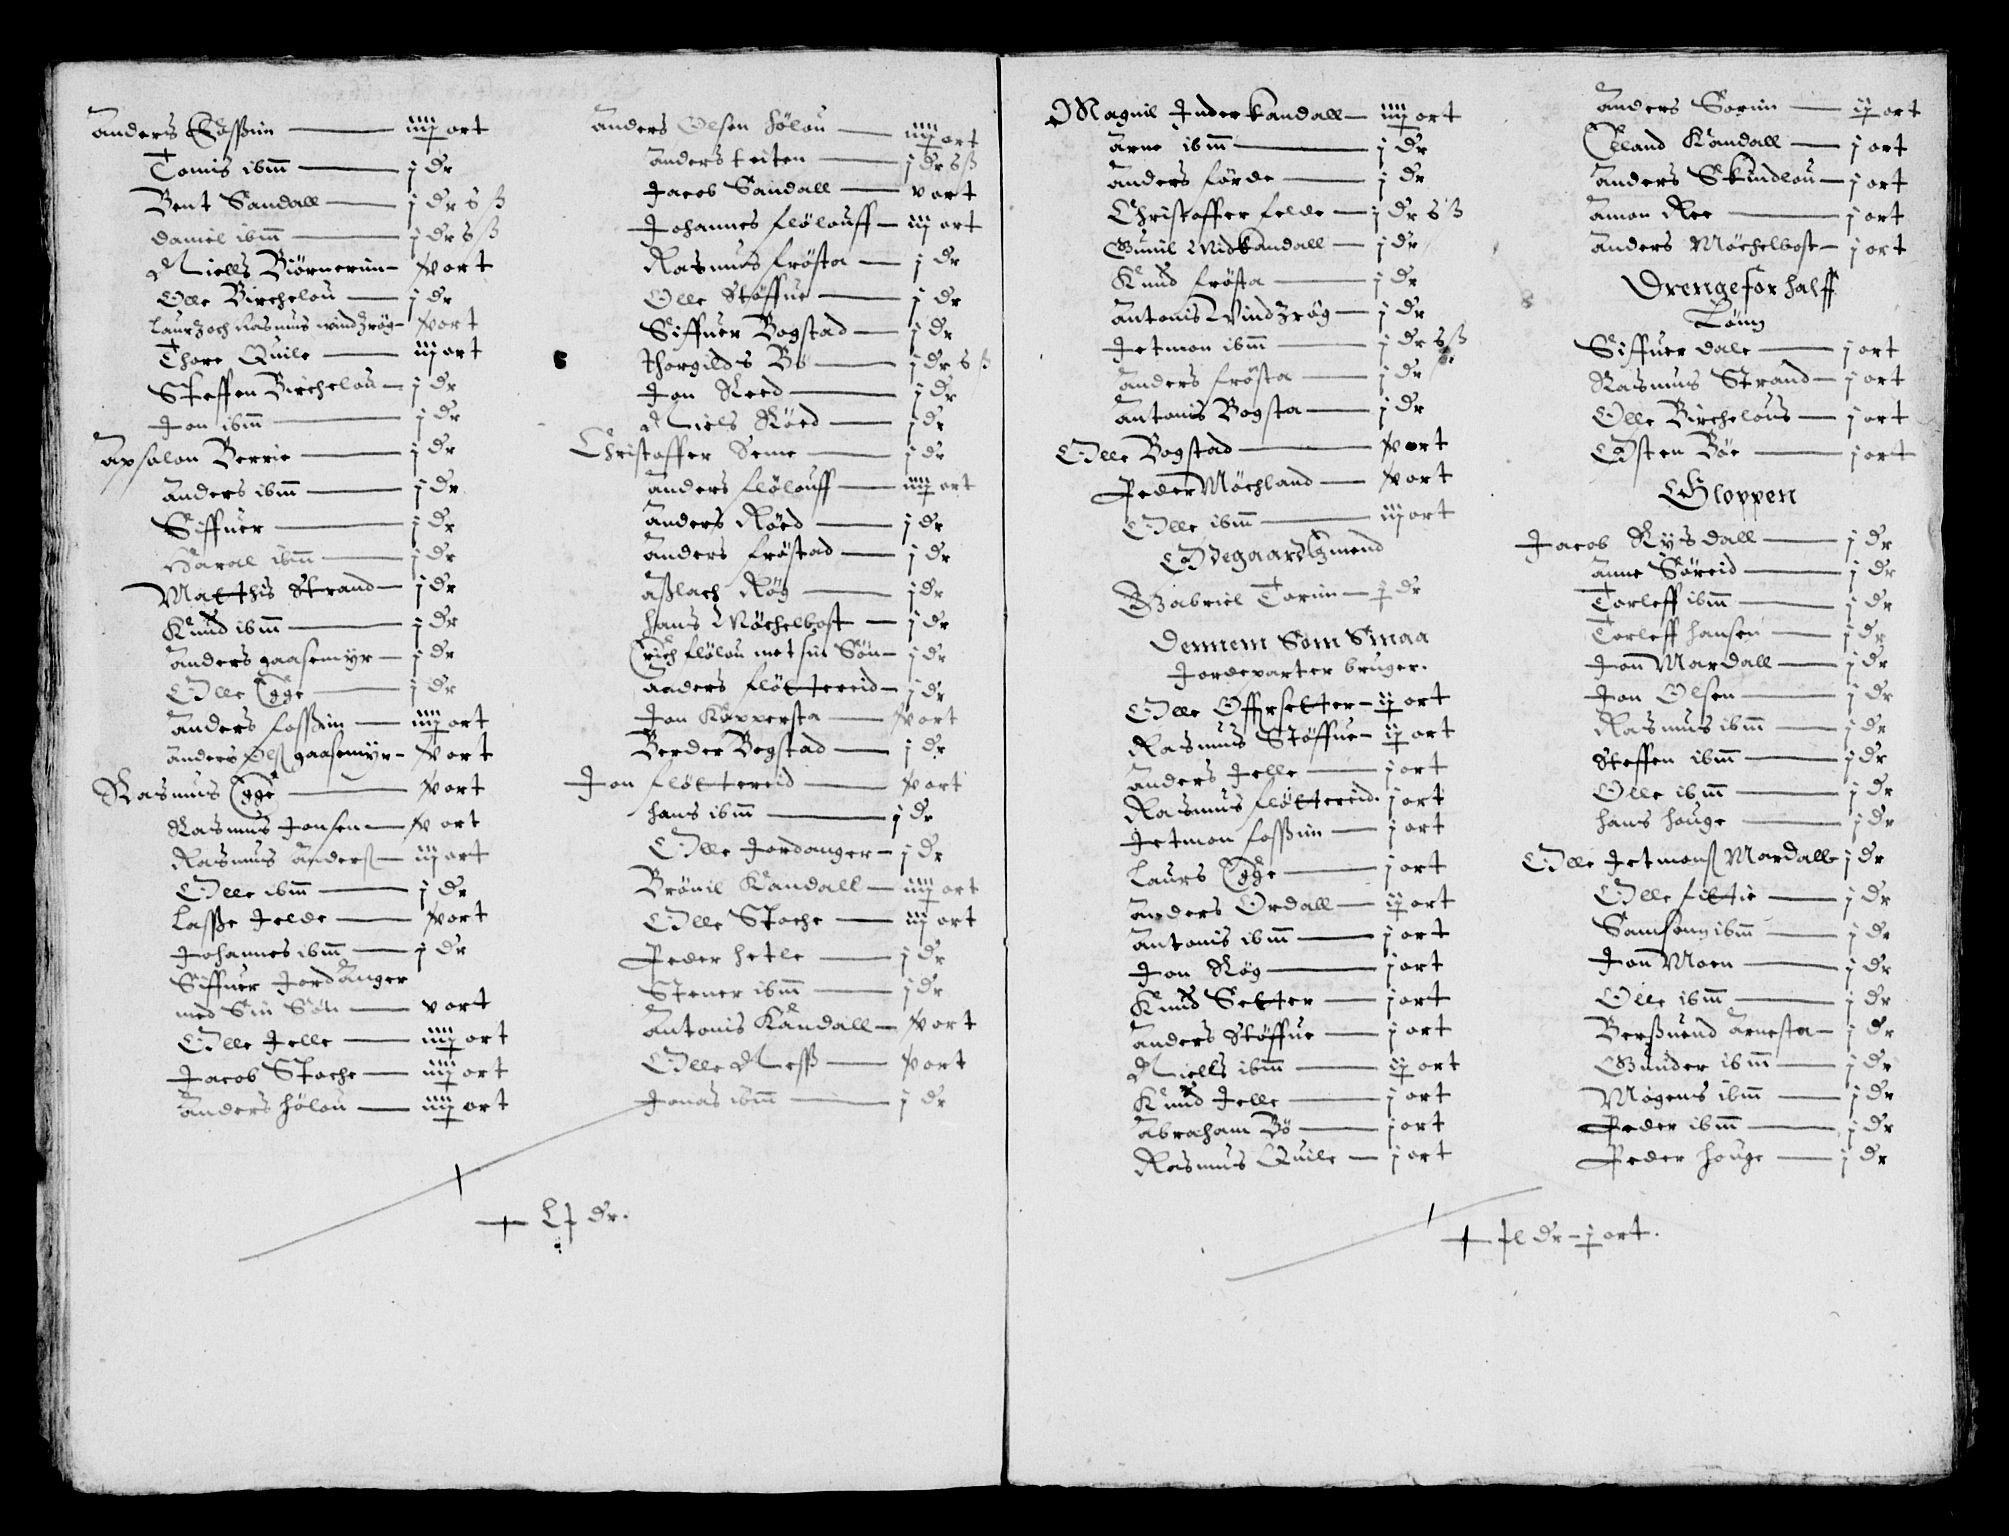 Anders Fossim — iiij ort
Tomis ibm — j dr
Bent Sandall — j dr s ß
Daniel ibm — j dr s ß
Niells Biørnerim — v ort
Olle Birchelou — j dr
Laurz och Rasmus windzrøg — v ort
Thore Quile — iij ort
Steffen Birchelou — j dr
Jon ibm — j dr
Apsalon Berrie — j dr
Anders ibm — j dr
Siffuer — j dr
Haral ibm — j dr
Matthis Strand — j dr
Knud ibm — j dr
Anders gaasemyr — j dr
Olle Egge — j dr
Anders fossim — iiij ort
Anders Olß gaasemyr — v ort
Rasmus Egge — v ort
Rasmus Jonsen — v ort
Rasmus Anderß — iij ort
Olle ibm — j dr
Lasse Jelde — v ort
Johannes ibm — j dr
Siffuer Jordanger
med Sin Søn — v ort
Olle Jelle — iiij ort
Jacob Stache — iiij ort
Anders hølou — iiij ort
Anders Olsen hølou — iiij ort
Anders teiten — j dr s ß
Jacob Sandall — v ort
Johannes flølouff — iij ort
Rasmus frøsta — j dr
Olle Støffue — j dr
Siffuer Bogstad — j dr
Thorgilds Bø — j dr s ß
Jon Reed — j dr
Niels Røed — j dr
Christoffer Seme — j dr
Anders flølouff — iiij ort
Anders Røed — j dr
Anders frøstad — j dr
Aßlach Røg — j dr
Hans Møchelbost — j dr
Erich flølou met sin Søn — j dr
Anders fløttereid — j dr
Jon Køppersta — v ort
Berder Bogstad — j dr
Jon fløttereid — v ort
Hans ibm — j dr
Olle Jordanger — j dr
Brønil Kandall — iiij ort
Olle Stache — iij ort
Peder hetle — j dr
Stener ibm — j dr
Antonis Kandall — v ort
Olle Neß — v ort
Jonas ibm — j dr
Lj dr.
Magnil Inderkandall — iiij ort
Arne ibm — j dr
Anders førde — j dr
Christoffer felde — j dr s ß
Gunil Midkandall — j dr
Knud frøsta — j dr
Antonis Vindzrøg — j dr
Jetmon ibm — j dr s ß
Anders frøsta — j dr
Antonis Bogsta — j dr
Olle Bogstad — v ort
Peder Møchland — v ort
Olle ibm — iij ort
Ødegaardtzmend
Gabriel Torim — j dr
Dennem Som Smaa
Jordeparter bruger.
Olle Offrsetter — ij ort
Rasmus Støffue — ij ort
Anders Jelle — j ort
Rasmus fløttereid. j ort
Jetmon fossim — j ort
Laurs Egge — j ort
Anders Ordall — ij ort
Antonis ibm — j ort
Jon Røg — j ort
Knud Setter — j ort
Anders Støffue — j ort
Niells ibm — ij ort
Knud Jelle — j ort
Abraham Bø — j ort
Rasmus Quile — j ort
Anders Sorim — ij ort
Elland Kandall — j ort
Anders Skindlou — j ort
Amon Ree — j ort
Anders Møchelbost — j ort
Drenge for halff
Lønn
Siffuer dale — j ort
Rasmus Strand — j ort
Olle Birchelous — j ort
Østen Bøe — j ort
Gloppen
Jacob Rysdall — j dr
Anne Søreid — j dr
Torleff ibm — j dr
Torleff hansen — j dr
Jon Mardall — j dr
Jon Olsen — j dr
Rasmus ibm — j dr
Steffen ibm — j dr
Olle ibm — j dr
Hans houge — j dr
Olle Jetmonß Mardall j dr
Olle fittie — j dr
Samsonn ibm — j dr
Jon Moen — j dr
Olle ibm — j dr
Berßuend Arnesta — j dr
Gunder ibm — j dr
Mogens ibm — j dr
Peder ibm — j dr
Peder houge — j dr
dr — j ort.